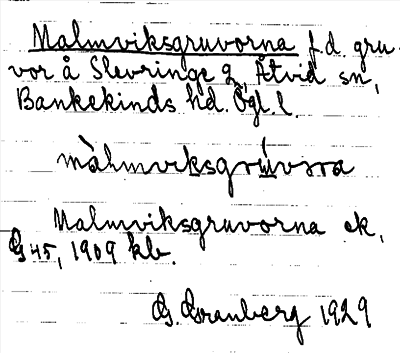 Malmviksgruvorna f.d. gru-
vor å Slevringe g, Åtvid sn,
Bankekinds hd. Ögl. l.
màlmviksgrúvωra
Malmviksgruvorna ek,
G 45, 1909 kb.
G. Granberg 1929